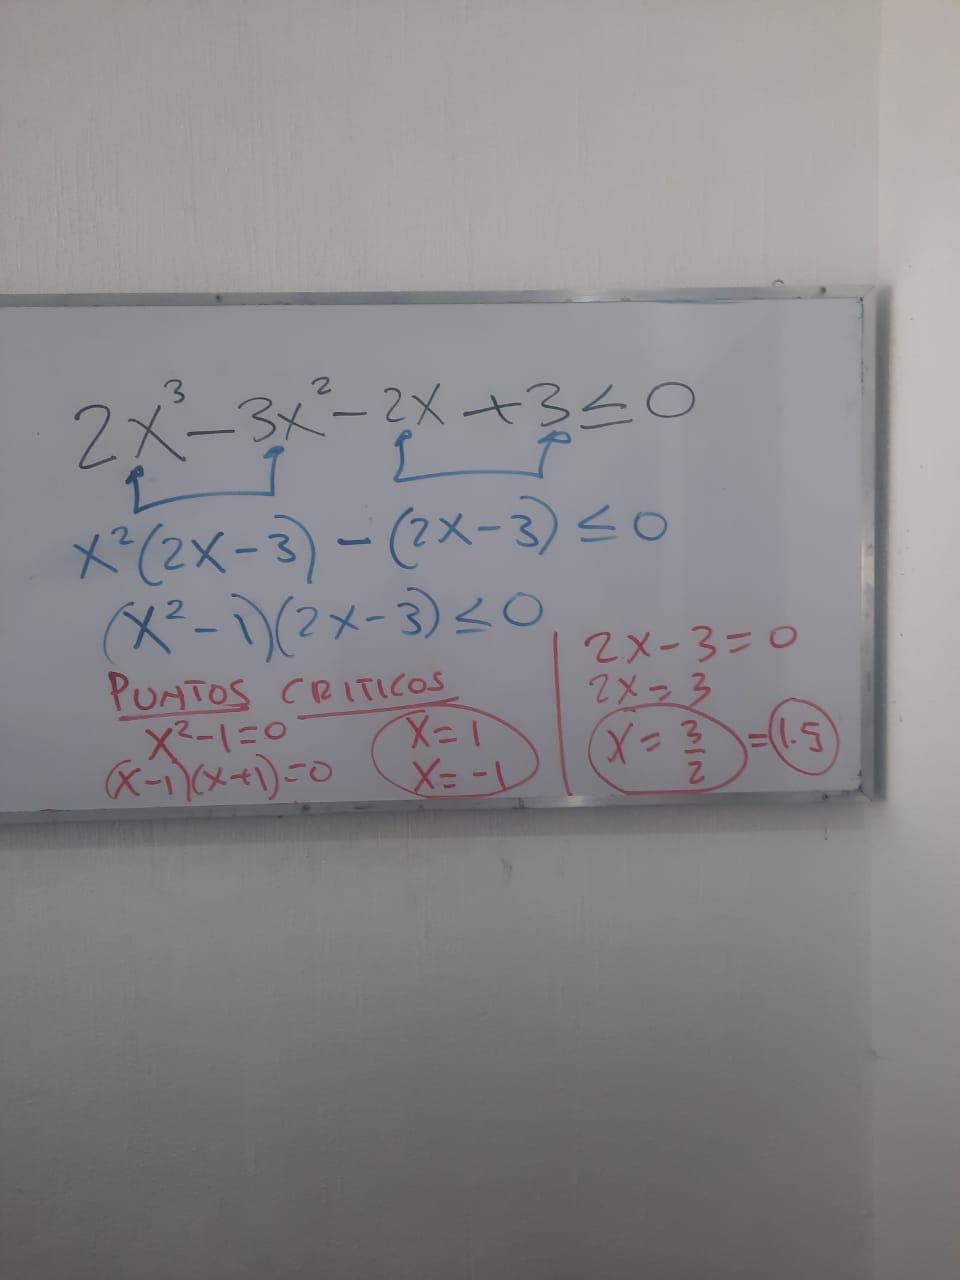 2x³ - 3x² - 2x + 3 ≤ 0
x²(2x - 3) - (2x - 3) ≤ 0
(x² - 1)(2x - 3) ≤ 0
PUNTOS CRITICOS
x² - 1 = 0
(x - 1)(x + 1) = 0
x = 1
x = -1
2x - 3 = 0
2x = 3
x = 3/2 = 1.5